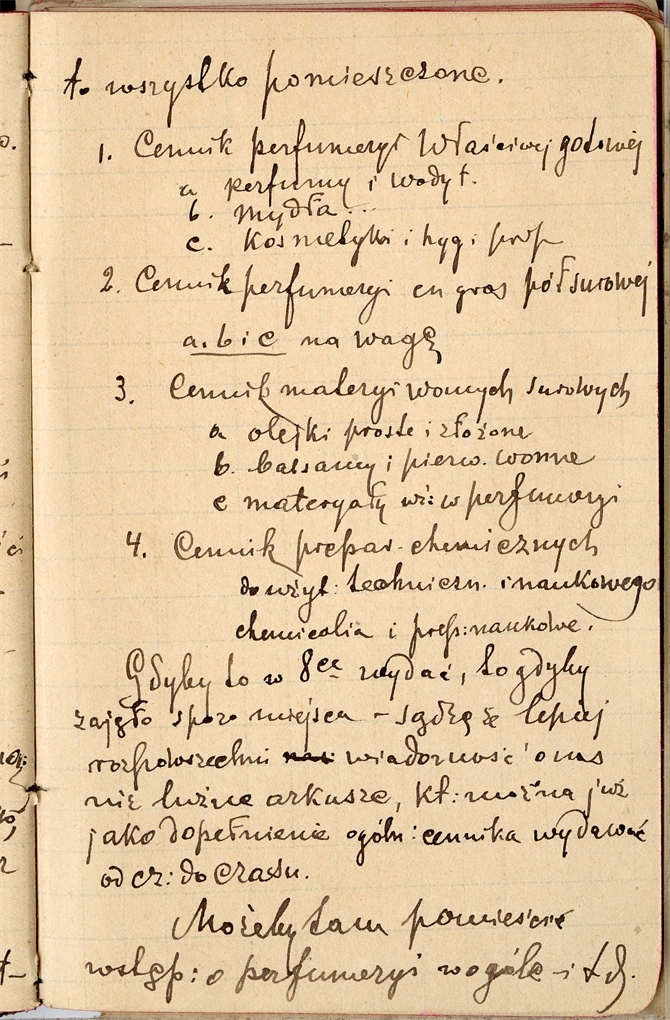 to wszystko pomieszczone.
1. Cennik perfumeryi właściwej gotowej
a perfumy i wody t.
b. mydła...
c. kosmetyki i hyg i prep
2. Cennik perfumeryi en gros półsurowej
a. b i c na wagę
3. Cennik materyi wonnych surowych
a olejki proste i złożone
b. balsamy i pierw. wonne
c materyały uż: w perfumeryi
4. Cennik prepar. chemicznych
do użyt: techniczn. i naukowego
chemicalia i prep: naukowe.
Gdyby to w 8ce wydać, to gdyby
zajęło sporo miejsca – sądzę że lepiej
rozpowszechni wiadomość o nas
niż luźne arkusze, kt: można już
jako dopełnienie ogóln: cennika wydawać
od cz: do czasu.
Możeby tam pomieścić
wstęp: o perfumeryi wogóle – i t d.